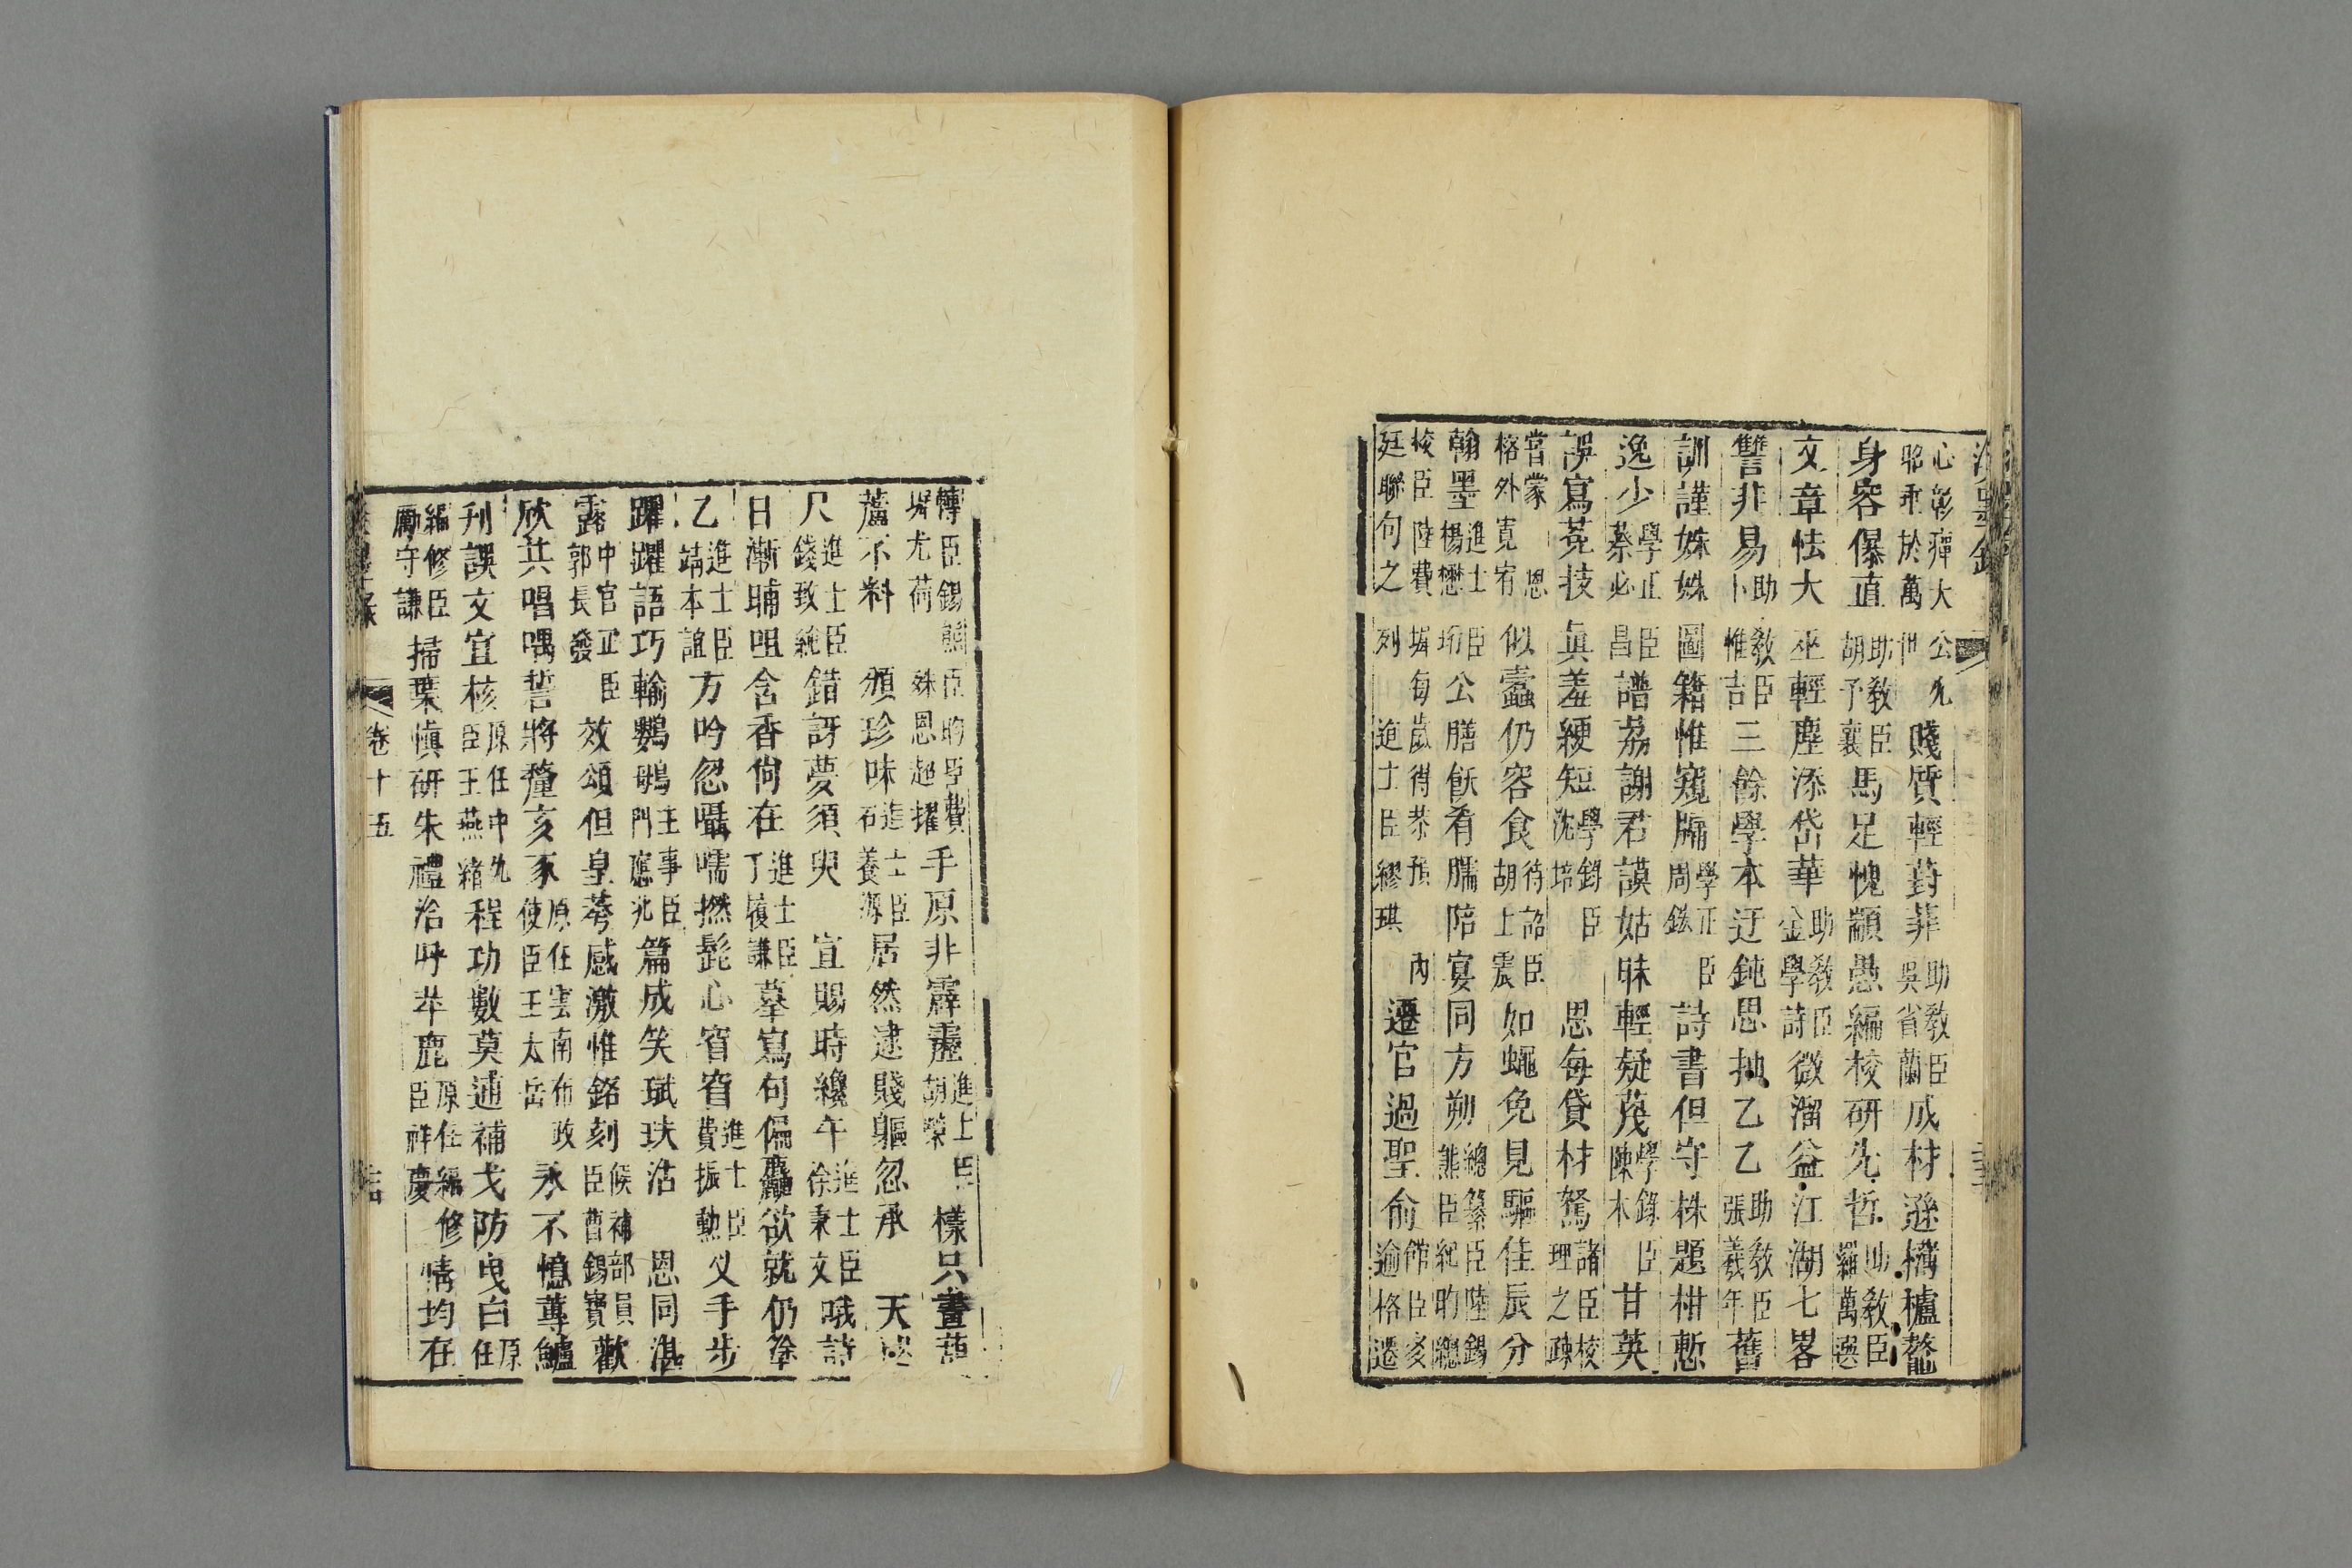 心彰癉大公允
昭示於萬世
賤質輕葑菲
助教臣
吳省蘭
成材遜欂櫨鼇
身容㬥直
助教臣
胡予襄
馬足愧顓愚編校研先哲
助教臣
羅萬選
文章怯大巫輕塵添岱華
助教臣
金學詩
微溜益江湖七畧
讐非易
助教臣
卜惟吉
三餘學本迂鈍思抽乙乙
助教臣
張羲年
舊
訓謹姝姝圖籍惟窺牖
學正臣
周鋐
詩書但守株題柑慙
逸少
學正臣
蔡必昌
譜荔謝君謨姑昧輕疑蔑
學錄臣
陳木
甘英
誤寫莞技真羞綆短
學錄臣
沈培
恩每貸材駑
諸臣校
理之疎
嘗蒙恩
格外寬宥
似蠹仍容食
待詔臣
胡士震
如蠅免見驅佳辰分
翰墨
進士臣
楊懋珩
公膳飫肴臑陪宴同方朔
總纂臣陸錫
熊臣紀昀總
校臣陸費墀每歲得恭預內
廷聯句之列
進士臣繆琪
遷官過聖俞
館臣多
逾格遷
轉臣錫熊臣昀臣費
墀尤荷殊恩超擢
手原非霹靂
進士臣
胡榮
樣只畫葫
蘆不料
頒珍味
進士臣
石養源
居然逮賤軀忽承
天
尺
進士臣
錢致純
錯訝夢須臾
宣賜時纔午
進士臣
徐秉文
哦詩
日漸晡咀含香尚在
進士臣
丁履謙
摹寫句偏麤欲就仍塗
乙
進士臣
靖本誼
方吟忽囁嚅撚髭心窅窅
進士臣
費振勳
叉手步
躍躍語巧輸鸚鵡
主事臣
門應兆
篇成笑珷玞沾
恩同湛
露
中官正臣
郭長發
效頌但皇荂感激惟銘刻
候補部員
臣曹錫寶
歡
欣共唱喁誓將釐亥豕
原任雲南布政
使臣王太岳
永不憶蓴鱸
刊誤文宜核
原任中允
臣王燕緒
程功數莫逋補戈防曳白
原任
編修臣
勵守謙
掃葉慎研朱禮洽呼苹鹿
原任編修
臣祥慶
情均在
卷十五